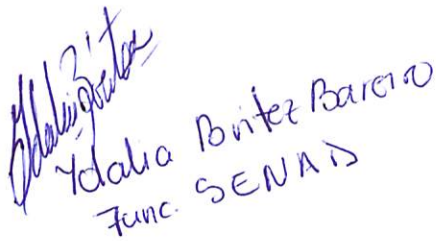 Ydalia Benitez Bareiro
Func. SENAD